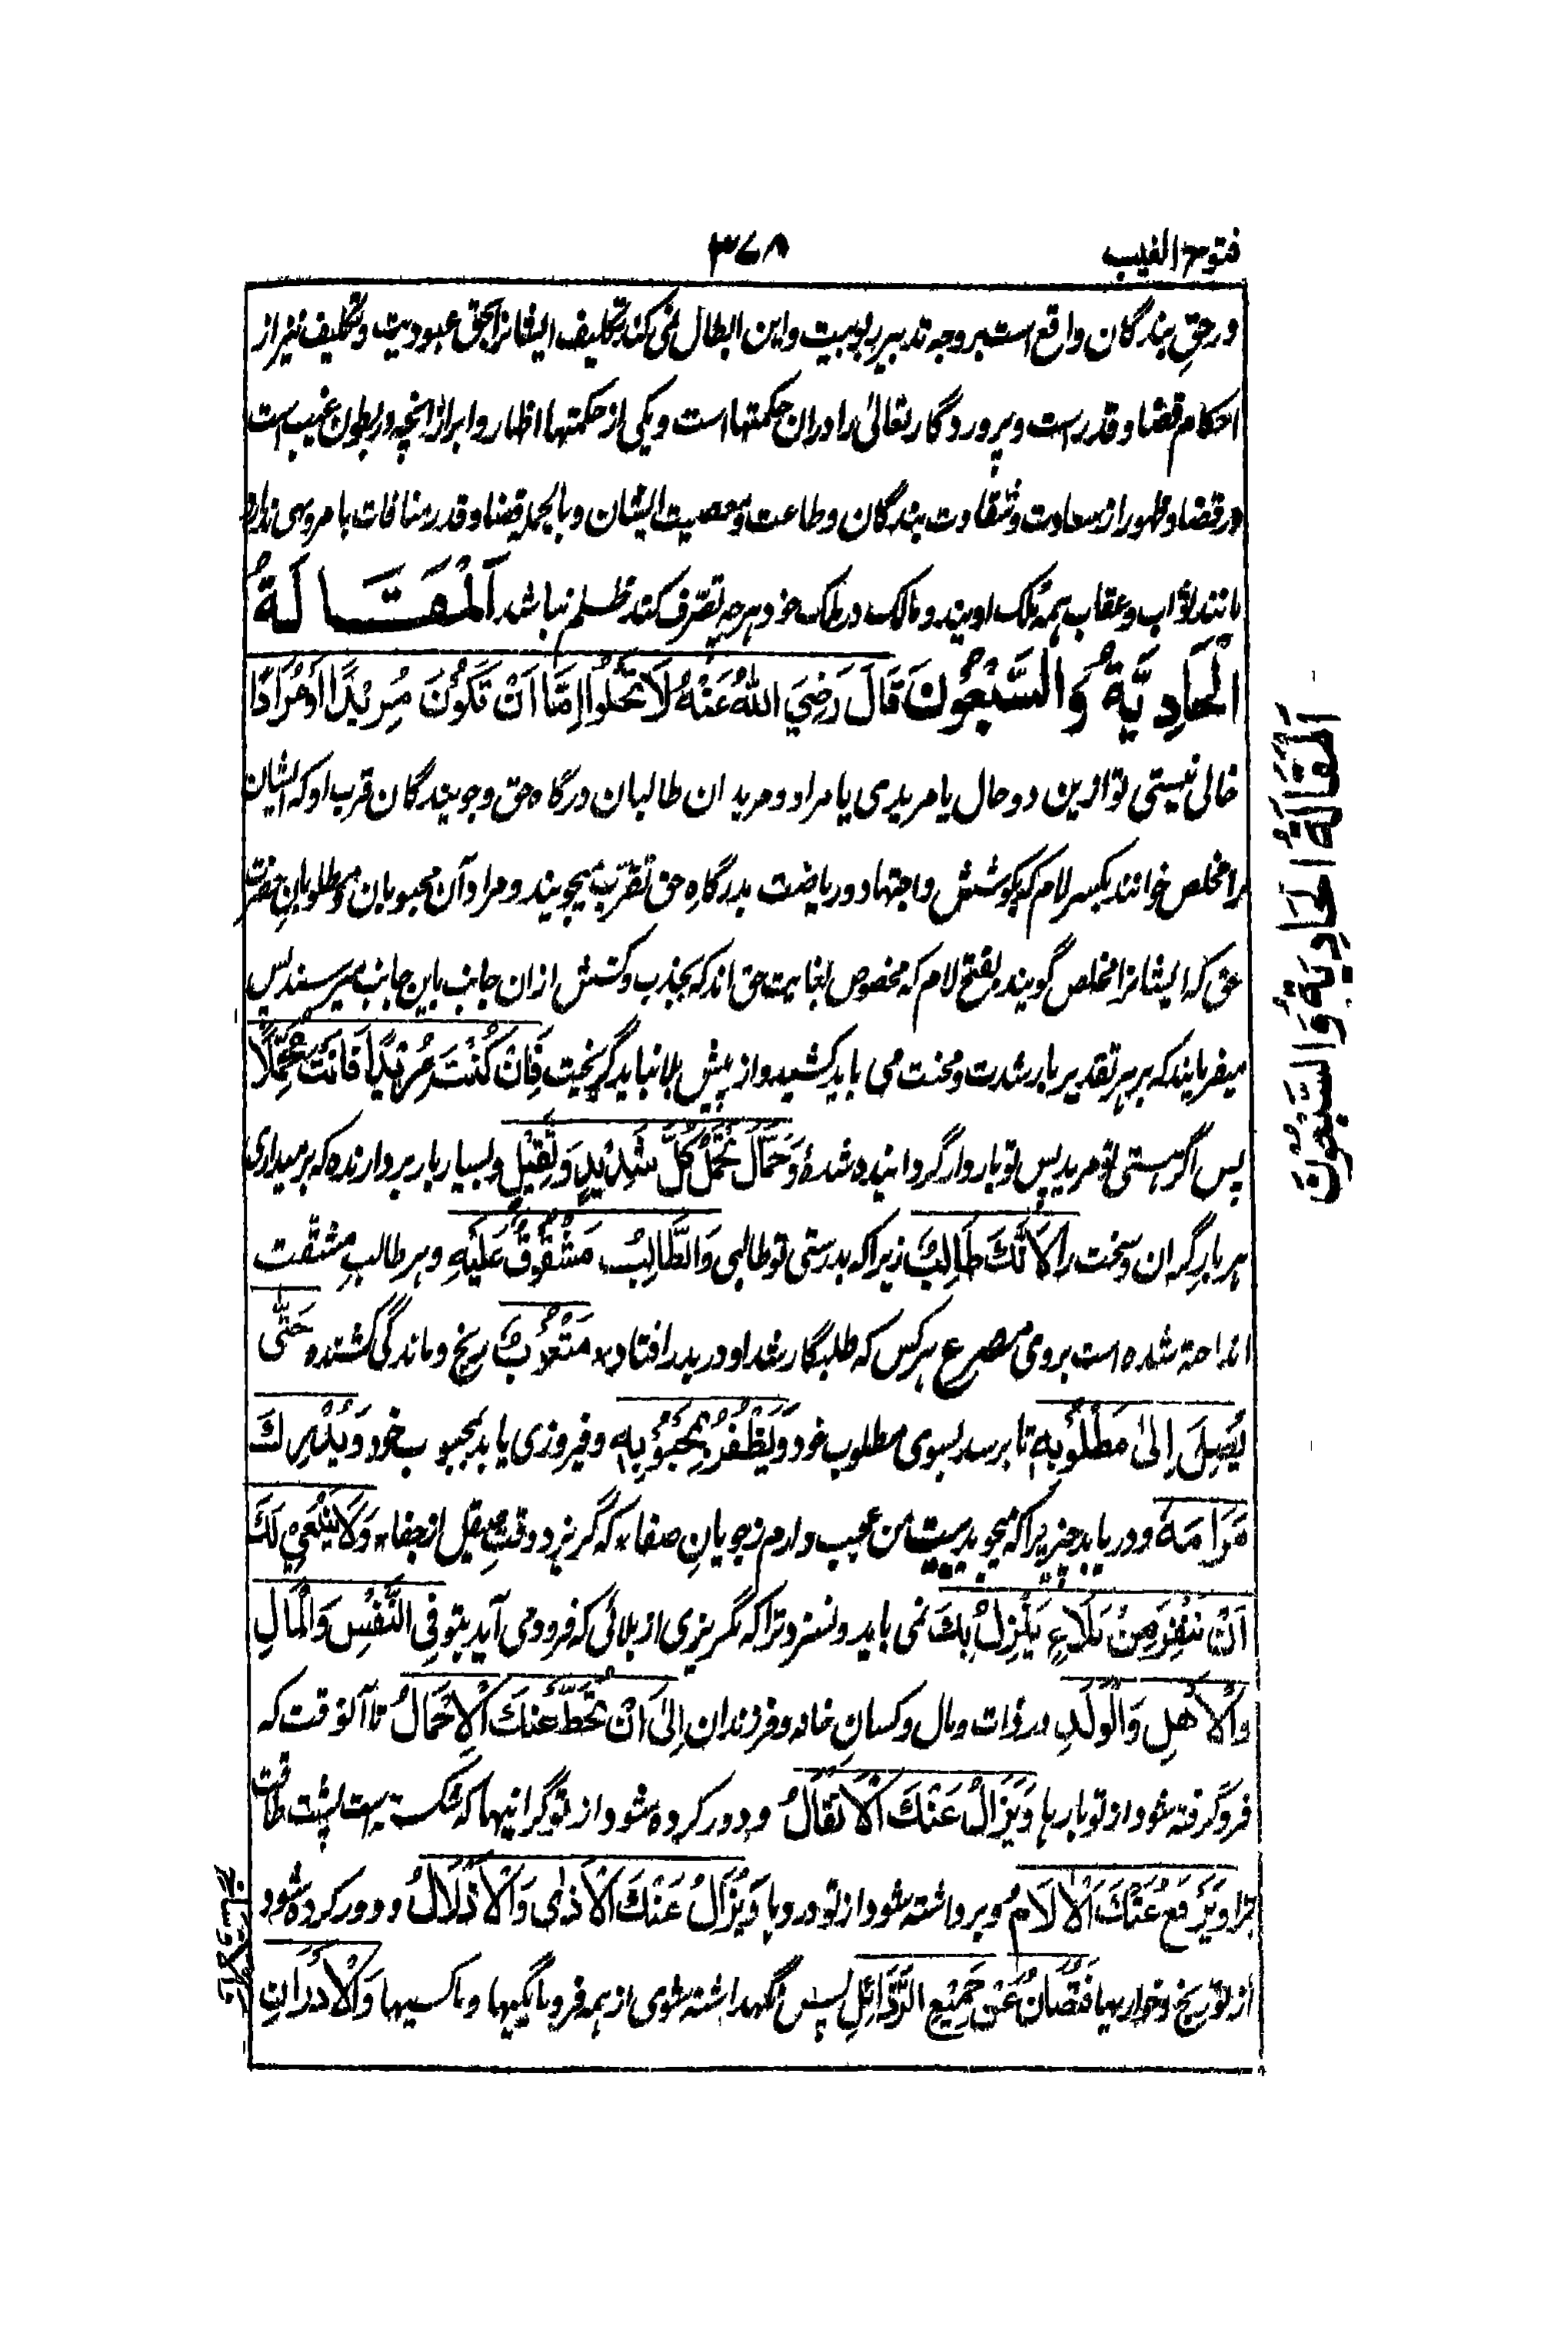 فتوح الغیب
۳۷۸
در حقِ بندگان واقع است بر وجه تدبیر ربوبیت و این ابطال نمی کند تکلیف ایشانرا بحق عبودیت و تکلیف نیز از
احکام قضا و قدر است و پروردگار تعالیٰ را دران حکمتها است و یکی از حکمتها اظهار و ابراز انچه در بطون غیب است
در قضا و ظهور از سعادت و شقاوت بندگان و طاعت و معصیت ایشان و بالجمله قضا و قدر منافات با مر و نهی ندارد
مانند ثواب و عقاب همه مُلک اویند و مالک در ملک خود هرچه تصرّف کند ظلم نباشد اَلْمَقَالَةُ
الْحَادِيَةُ وَالسَّبْعُونَ قَالَ رَضِيَ اللهُ عَنْهُ لَا تَخْلُوْا اِمَّا اَنْ تَكُوْنَ مُرِيْدًا اَوْ مُرَادًا
خالی نیستی تو ازین دو حال یا مریدی یا مراد و مریدان طالبان درگاه حق و جویندگان قرب او که ایشان
را مخلص خوانند بکسر لام که بکوشش و اجتهاد و ریاضت بدرگاهِ حق تقرّب میجویند و مراد آن محبوبان و مطلوبانِ حضرت
حق که ایشانرا مخلص گویند بفتح لام که مخصوص بعنایت حق اند که بجذب و کشش ازان جانب باین جانب میرسند پس
میفرمایند که بر هر تقدیر بار شدت و محنت می باید کشید و از پیش بلا نباید گریخت فَاِنْ كُنْتَ مُرِيْدًا فَاَنْتَ مُحَمَّلٌ
پس اگر هستی تو مرید پس تو باردار گردانیده شدهٔ وَحَمَّالٌ تَحْمِلُ كُلَّ شَدِيْدٍ وَثَقِيْلٍ و بسیار بار بردارنده که برمیداری
هر بارِ گران و سخت را لِاَنَّكَ طَالِبٌ زیرا که بدرستی تو طالبی وَالطَّالِبُ مَشْقُوْقٌ عَلَيْهِ و هر طالبِ مشقّت
انداخته شده است بروی مصرع هر کس که طلبگار شد او در بدر افتاد مَتْعُوْبٌ رنج و ماندگی کشنده حَتّٰى
يَصِلَ اِلىٰ مَطْلُوْبِهٖ تا برسد بسوی مطلوب خود وَيَظْفُرُ بِمَحْبُوْبِهٖ و فیروزی یابد بمحبوب خود وَيُدْرِكَ
مَرَامَهٗ و دریابد چیزیرا که میجوید بیت من عجب دارم ز جویانِ صفا٭ که گریزد وقتِ صیقل از جفا٭ وَلَا يَنْبَغِيْ لَكَ
اَنْ تَنْفُرَ مِنْ بَلَاءٍ يَنْزِلُ بِكَ نمی باید و نسزد ترا که بگریزی از بلائی که فرود می آید بتو فِي النَّفْسِ وَالْمَالِ
وَالْاَهْلِ وَالْوَلَدِ در ذات و مال و کسانِ خانه و فرزندان اِلىٰ اَنْ تُحَطَّ عَنْكَ الْاَحْمَالُ تا آنوقت که
فروگرفته شود از تو بارها وَيُزَالُ عَنْكَ الْاَثْقَالُ و دور کرده شود از تو گرانیها که شکسته است پشت طاقت
ترا وَيُرْفَعُ عَنْكَ الْاٰلَامُ و برداشته شود از تو دردها وَيُزَالُ عَنْكَ الْاَذٰى وَالْاَذْلَالُ و دور کرده شود
از تو رنج و خواریها فَتُصَانُ عَنْ جَمِيْعِ الرَّذَائِلِ پس نگهداشته شوی از همه فرومایگیها و ناکسیها وَالْاَدْرَانِ
اَلْمَقَالَةُ الْحَادِيَةُ وَالسَّبْعُوْنَ